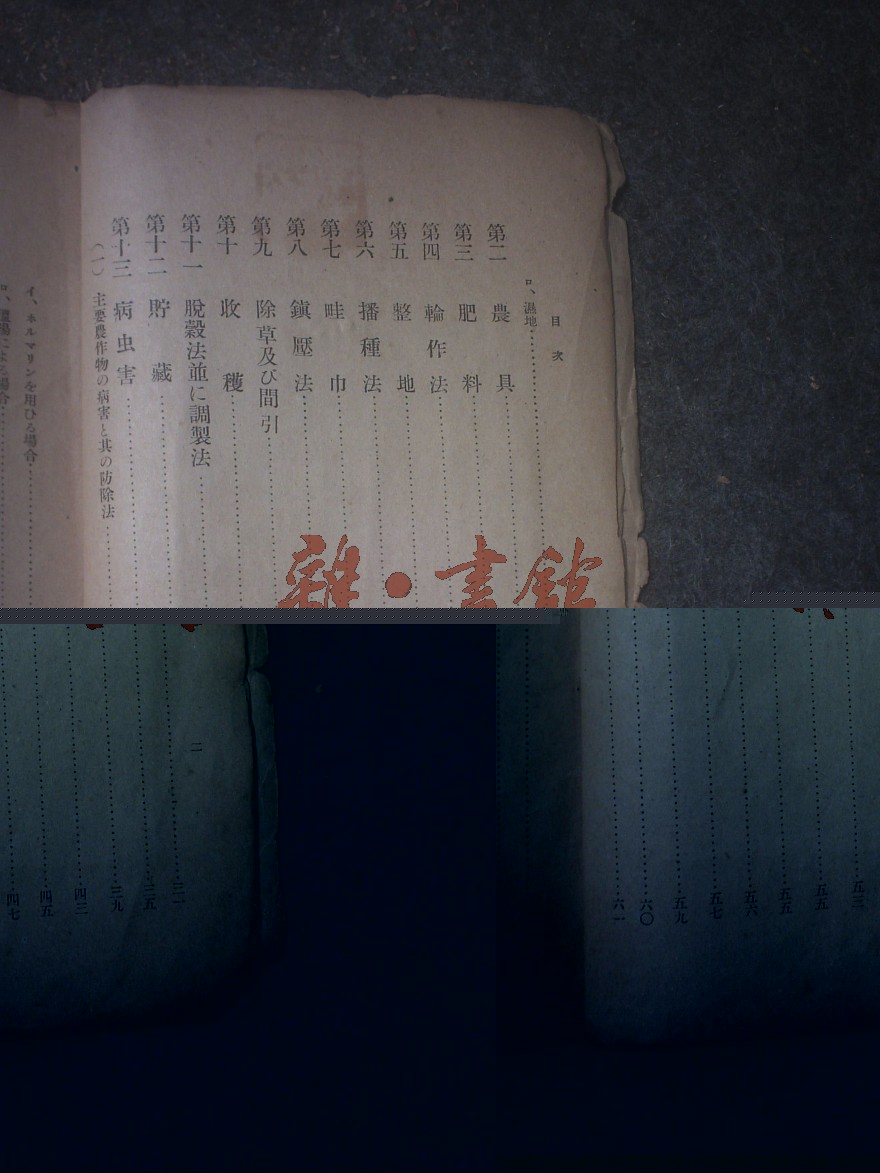 目次 二
ロ、濕地……三一
第二 農具……三五
第三 肥料……三九
第四 輪作法……四三
第五 整地……四五
第六 播種法……四七
第七 畦巾……五三
第八 鎭壓法……五五
第九 除草及び間引……五五
第十 收穫……五六
第十一 脫穀法並に調製法……五七
第十二 貯藏……五九
第十三 病虫害……六〇
(一) 主要農作物の病害と其の防除法……六一
イ、ホルマリンを用ひる場合……
ロ、による場合……
雜•書館